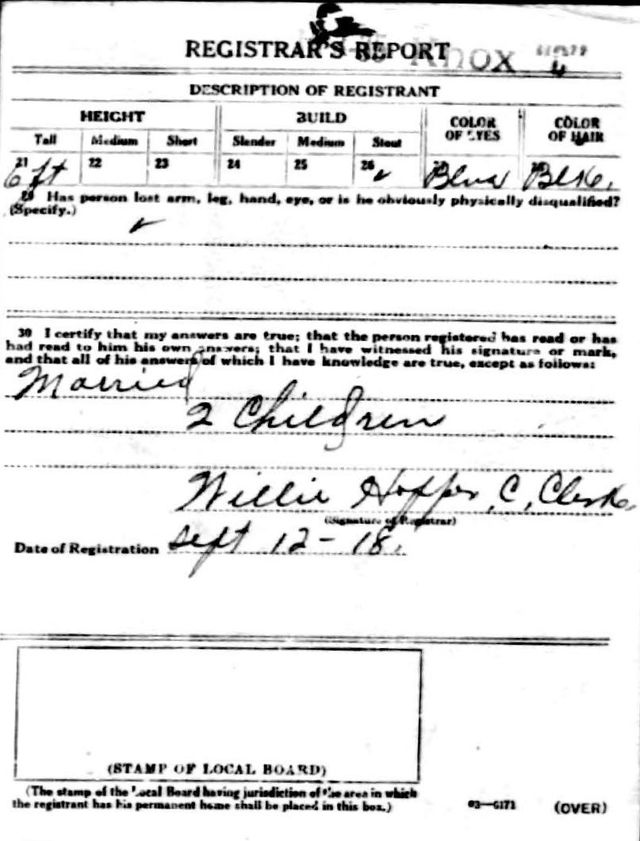 REGISTRAR'S REPORT
Knox
DESCRIPTION OF REGISTRANT
HEIGHT BUILD COLOR OF EYES COLOR OF HAIR
Tall Medium Short Slender Medium Stout
21 22 23 24 25 26
6 ft ✓ Blue Blk.
29 Has person lost arm, leg, hand, eye, or is he obviously physically disqualified?
(Specify.)
✓
30 I certify that my answers are true; that the person registered has read or has
had read to him his own answers; that I have witnessed his signature or mark,
and that all of his answers of which I have knowledge are true, except as follows:
Married
2 Children
Willie Hopper, C, Clerk.
(Signature of Registrar)
Date of Registration Sept 12-18.
(STAMP OF LOCAL BOARD)
(The stamp of the Local Board having jurisdiction of the area in which
the registrant has his permanent home shall be placed in this box.)
03—6171 (OVER)